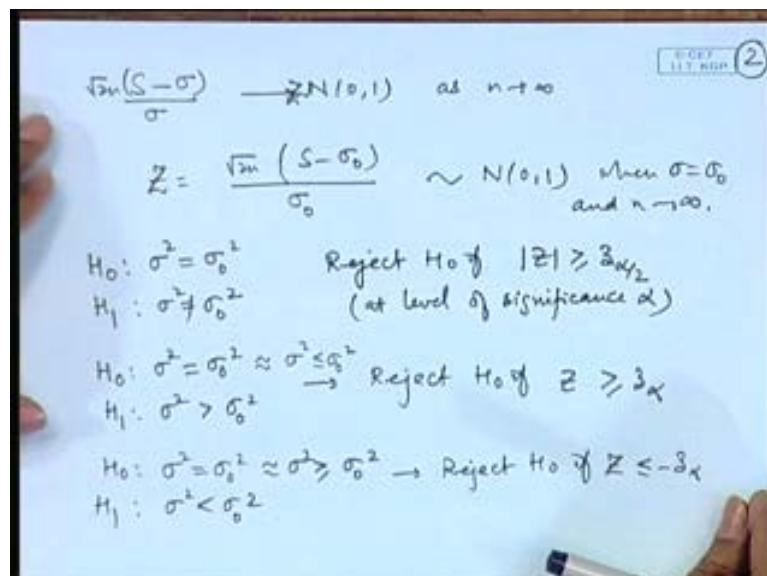 √2n (S − σ) / σ → Z N(0,1) as n → ∞
© CET
I.I.T. KGP
2
Z = √2n (S − σ₀) / σ₀ ~ N(0,1) when σ = σ₀
and n → ∞.
H₀: σ² = σ₀² Reject H₀ if |Z| ≥ z_{α/2}
H₁: σ² ≠ σ₀² (at level of significance α)
H₀: σ² = σ₀² ≈ σ² ≤ σ₀² → Reject H₀ if Z ≥ z_α
H₁: σ² > σ₀²
H₀: σ² = σ₀² ≈ σ² ≥ σ₀² → Reject H₀ if Z ≤ −z_α
H₁: σ² < σ₀²